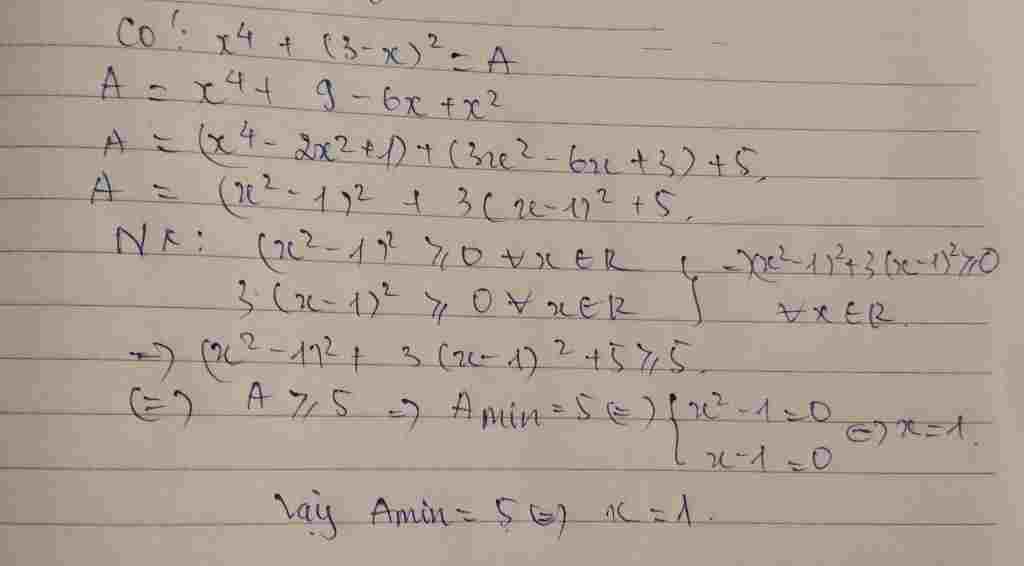 Có: x⁴ + (3-x)² = A
A = x⁴ + 9 - 6x + x²
A = (x⁴ - 2x² + 1) + (3x² - 6x + 3) + 5.
A = (x² - 1)² + 3(x-1)² + 5.
NX: (x² - 1)² ≥ 0 ∀x ∈ R } => (x²-1)² + 3(x-1)² ≥ 0
3(x-1)² ≥ 0 ∀x ∈ R ∀x ∈ R.
=> (x² - 1)² + 3(x-1)² + 5 ≥ 5.
(=) A ≥ 5 => Amin = 5 (=) { x² - 1 = 0 (=) x = 1.
x - 1 = 0
Vậy Amin = 5 (=) x = 1.